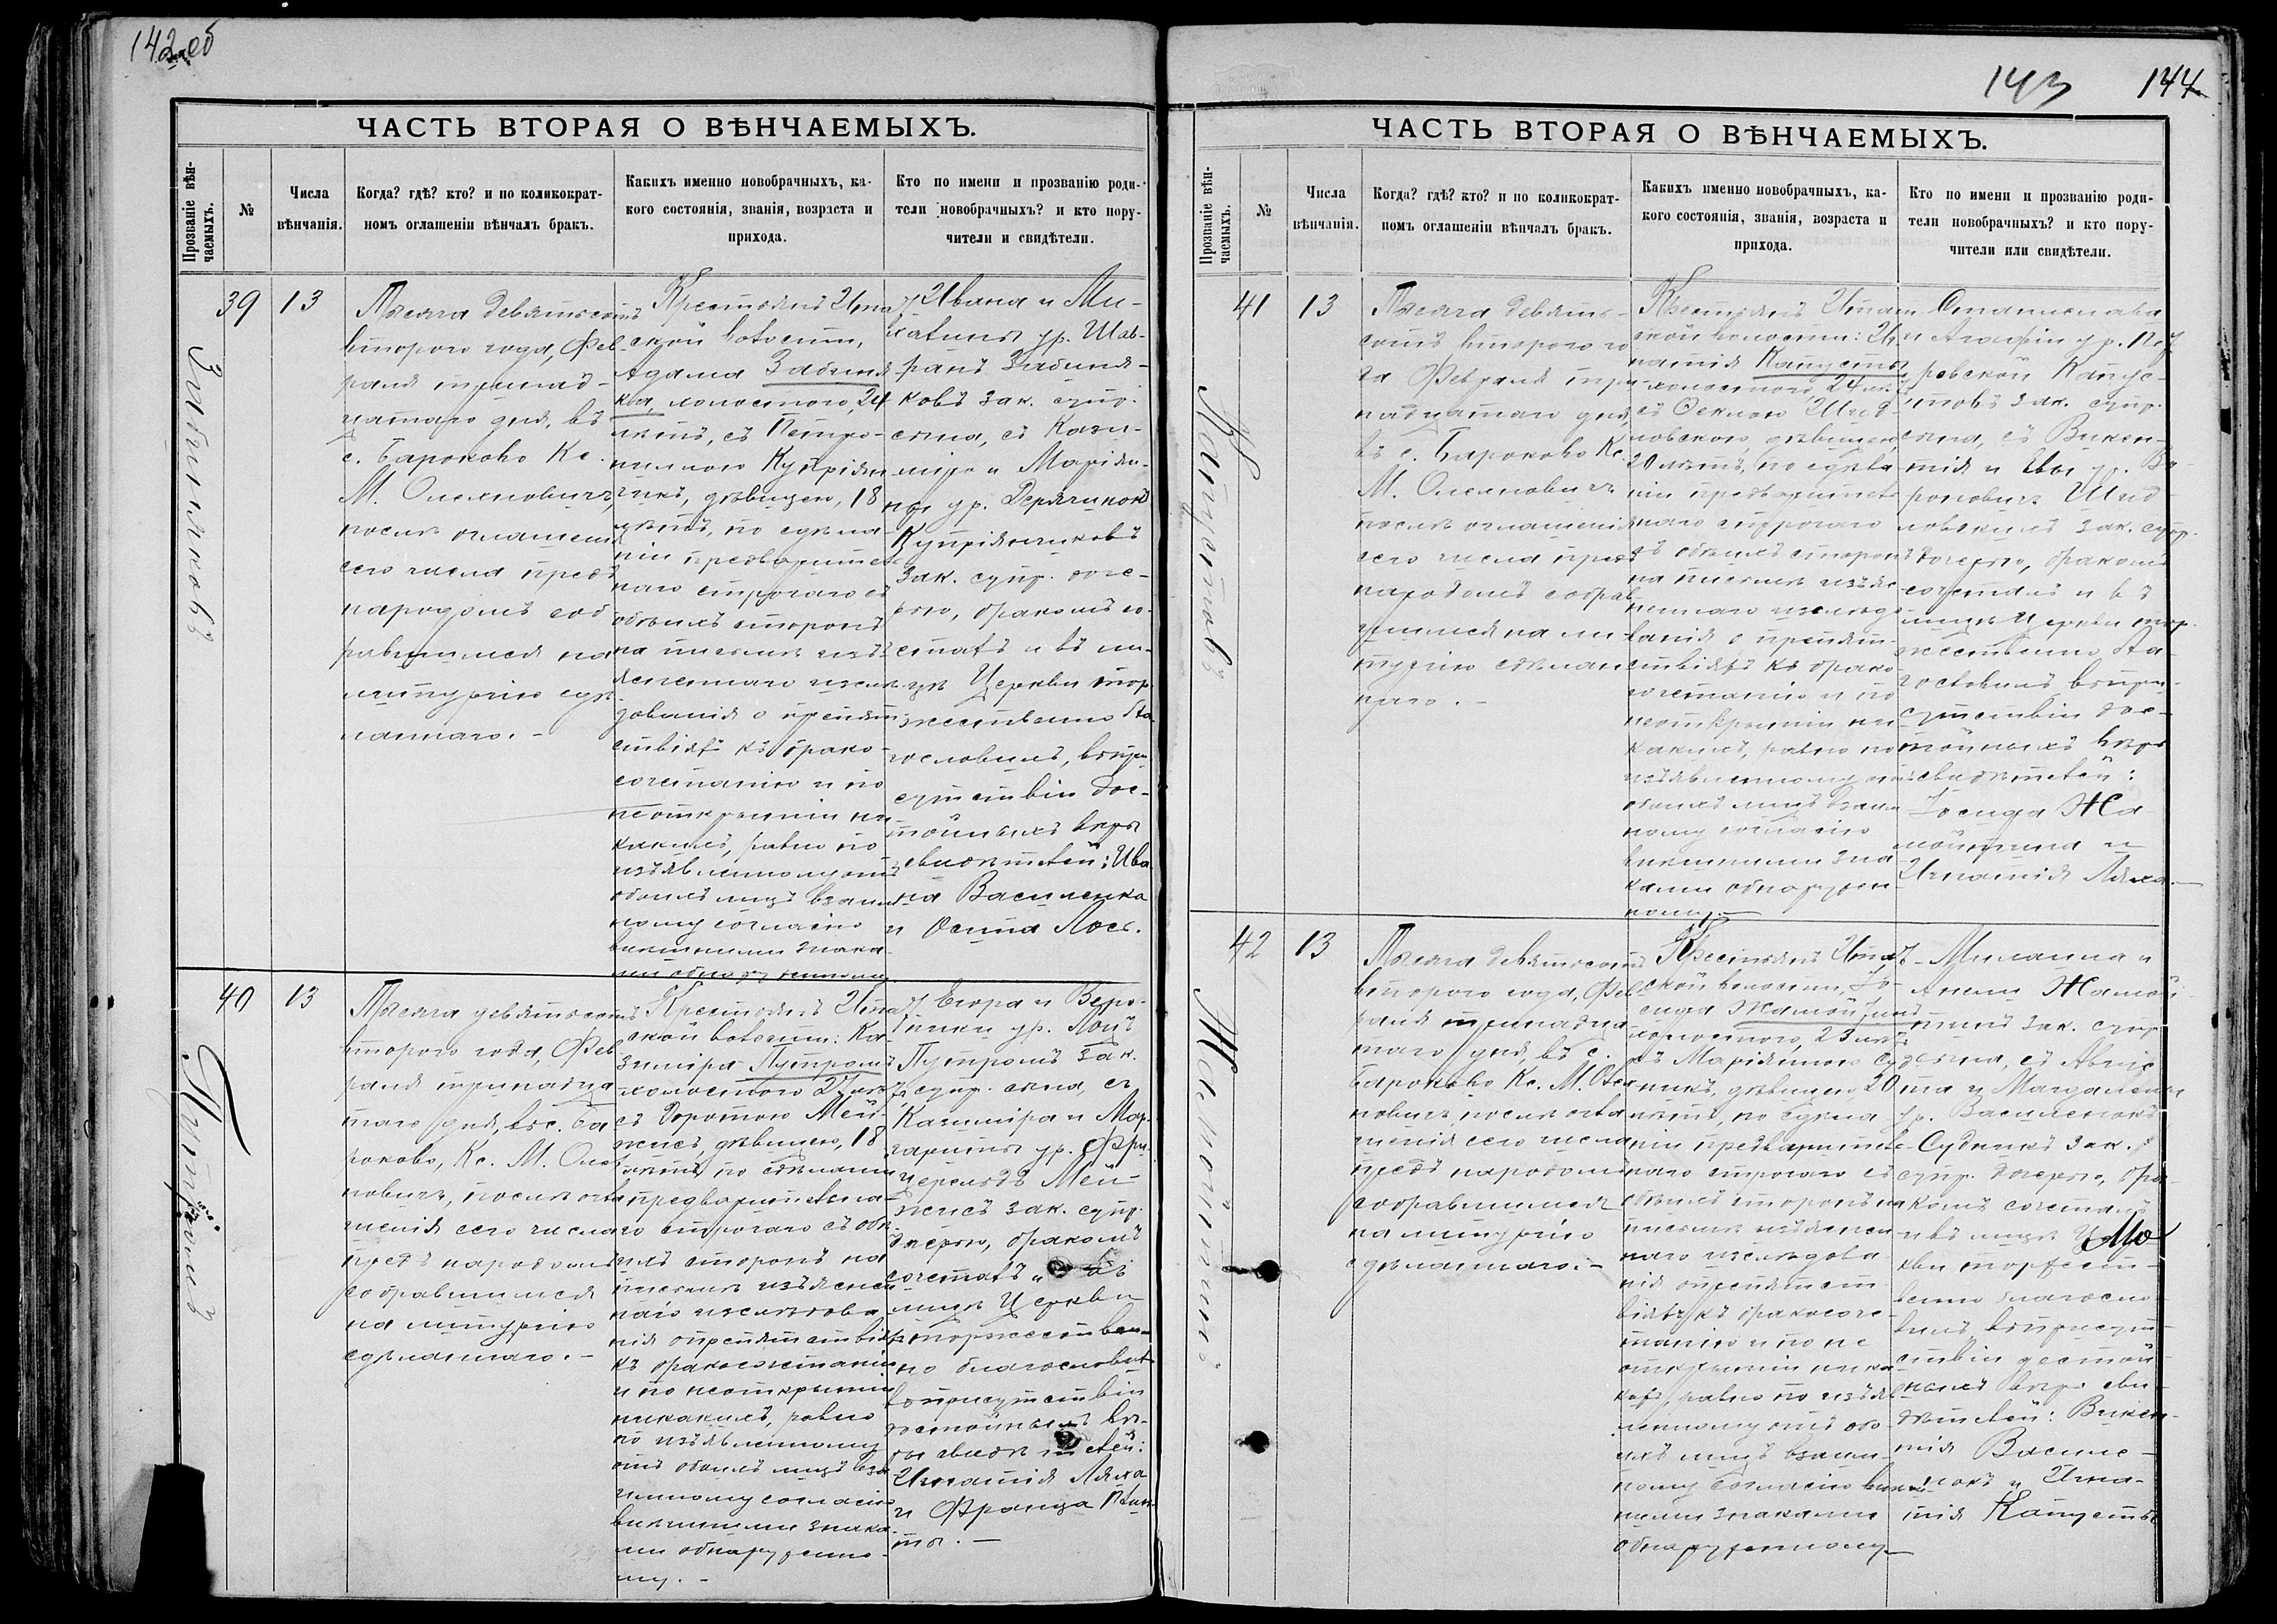 142 об
ЧАСТЬ ВТОРАЯ О ВѢНЧАЕМЫХЪ.
Прозваніе вѣн-
чаемыхъ.
№
Числа
вѣнчанія.
Когда? гдѣ? кто? и по коликократ-
номъ оглашеніи вѣнчалъ бракъ.
Какихъ именно новобрачныхъ, ка-
кого состоянія, званія, возраста и
прихода.
Кто по имени и прозванію роди-
тели новобрачныхъ? и кто пору-
чители и свидѣтели.
39
13
Тысяча девятьсотъ
второго года, Фев
раля тринад-
цатаго дня, въ
с. Бароково Кс.
М. Олехновичъ,
послѣ оглашенія
сего числа предъ
народомъ соб
равшимся на
литургію сдѣ
ланнаго.-
Крестьянъ
ской волости,
Адама Забиня
ка, холостого, 24
лѣтъ, съ Петро-
нилею Купріян
чикъ, дѣвицею, 18
лѣтъ, по сдѣла
ніи предварител
наго строгаго съ
обѣихъ сторонъ
на письмѣ изъ
ясненнаго изслѣ
дованія о препят
ствіяхъ къ брако-
сочетанію и по
неоткрытіи ни
какихъ, равно по
изъявленному отъ
обоихъ лицъ взаим
ному согласію
внѣшними знака
ми обнаруженному
Ивана и Ми-
халины ур. Шав-
ранъ Забиня-
ковъ зак. супр.
сына, съ Кази-
міра и Маріян-
ны ур.
Купріянчиковъ
зак. супр. доче-
рью, бракомъ со-
четалъ и въ ли-
цѣ Церкви тор
жественно бла
гословилъ, въ при
сутствіи дос-
тойныхъ вѣры
свидѣтелей: Ива
на Василенка
и Осипа Лось.
Забиняковъ
40
13
Тысяча девятьсотъ
второго года, Фев
раля тринадца
таго дня, въ с. Ба
роково, Кс. М. Олех
новичъ, послѣ огла
шенія сего числа
предъ народомъ
собравшимся
на литургію
сдѣланнаго.-
Крестьянъ
ской волости: Ка-
зиміра Путромъ
холостого 27 лѣт
съ Доротою Мей-
жисъ, дѣвицею, 18
лѣтъ, по сдѣлані
предварительна-
го строгаго съ обѣ
ихъ сторонъ на
письмѣ изъяснен
наго изслѣдова
нія о препятствія
къ бракосочетанію
и по неоткрытіи
никакихъ, равно
по изъявленному
отъ обоихъ лицъ вза
имному согласію
внѣшними знака
ми обнаруженно-
му.-
Егора и Веро-
ники ур.
Путромъ зак.
супр. сына, съ
Казиміра и Мар-
гариты ур.
Мей-
жисъ зак. супр.
дочерью, бракомъ
сочеталъ и въ
лицѣ Церкви
торжествен-
но благословилъ
въ присутствіи
достойныхъ вѣ-
ры свидѣтелей:
Игнатія Ляха
и Франца
Путромъ
143
144
ЧАСТЬ ВТОРАЯ О ВѢНЧАЕМЫХЪ.
Прозваніе вѣн-
чаемыхъ.
№
Числа
вѣнчанія.
Когда? гдѣ? кто? и по коликократ-
номъ оглашеніи вѣнчалъ бракъ.
Какихъ именно новобрачныхъ, ка-
кого состоянія, званія, возраста и
прихода.
Кто по имени и прозванію роди-
тели новобрачныхъ? и кто пору-
чители или свидѣтели.
41
13
Тысяча девять-
сотъ второго го
да Февраля три
надцатаго дня,
въ с. Бароково Кс.
М. Олехновичъ
послѣ оглашенія
сего числа предъ
народомъ собрав
шимся на ли
тургію сдѣлан
наго.-
Крестьянъ
ской волости: Иг
натія Капусты
холостого, 24 лѣтъ
съ Феклою Шид-
ловскою, дѣвицею,
20 лѣтъ, по сдѣла
ніи предварител
наго строгаго
съ обѣихъ сторонъ
на письмѣ изъяс
неннаго изслѣдо
ванія о препят
ствіяхъ къ брако
сочетанію и по
неоткрытіи ни
какихъ, равно по
изъявленному отъ
обоихъ лицъ взаим
ному согласію
внѣшними зна
ками обнаружен
ному.-
Станислава
и Агафіи ур.
Капус-
товъ зак. супр.
сына, съ Викен-
тія и Евы ур.
Шид-
ловскихъ зак. супр.
дочерью, бракомъ
сочеталъ и въ
лицѣ Церкви тор
жественно бла-
гословилъ въ при-
сутствіи дос-
тойныхъ вѣры
свидѣтелей:
Іосифа Жа-
мойтина и
Игнатія Ляха.-
Капустовъ
42
13
Тысяча девятьсотъ
второго года, Фев
раля тринадца
таго дня, въ с.
Бароково Кс. М. Олех
новичъ, послѣ огла
шенія сего числа
предъ народомъ
собравшимся
на литургію
сдѣланнаго.-
Крестьянъ
ской волости, Іо-
сифа Жамойтина
холостого, 23 лѣт
съ Маріянною Су
никъ, дѣвицею 20
лѣтъ, по сдѣла
ніи предварител
наго строгаго съ
обѣихъ сторонъ на
письмѣ изъяснен
наго изслѣдова
нія о препятст
віяхъ къ бракосоче
танію и по не
открытіи ника
кихъ, равно по изъяв
ленному отъ обо
ихъ лицъ взаим-
ному согласію внѣш
ними знаками
обнаруженному
Анны Жамой
тинъ зак. супр.
сына, съ Авгус
та и Магдалены
ур. Василенокъ
Судникъ зак.
супр. дочерью, бра-
комъ сочеталъ
и въ лицѣ Цер
кви торжест-
венно благосло-
вилъ, въ присут-
ствіи достой-
ныхъ вѣры сви-
дѣтелей: Викен-
тія Василе-
нокъ и Игна-
тія Капусты
Жамойтинъ